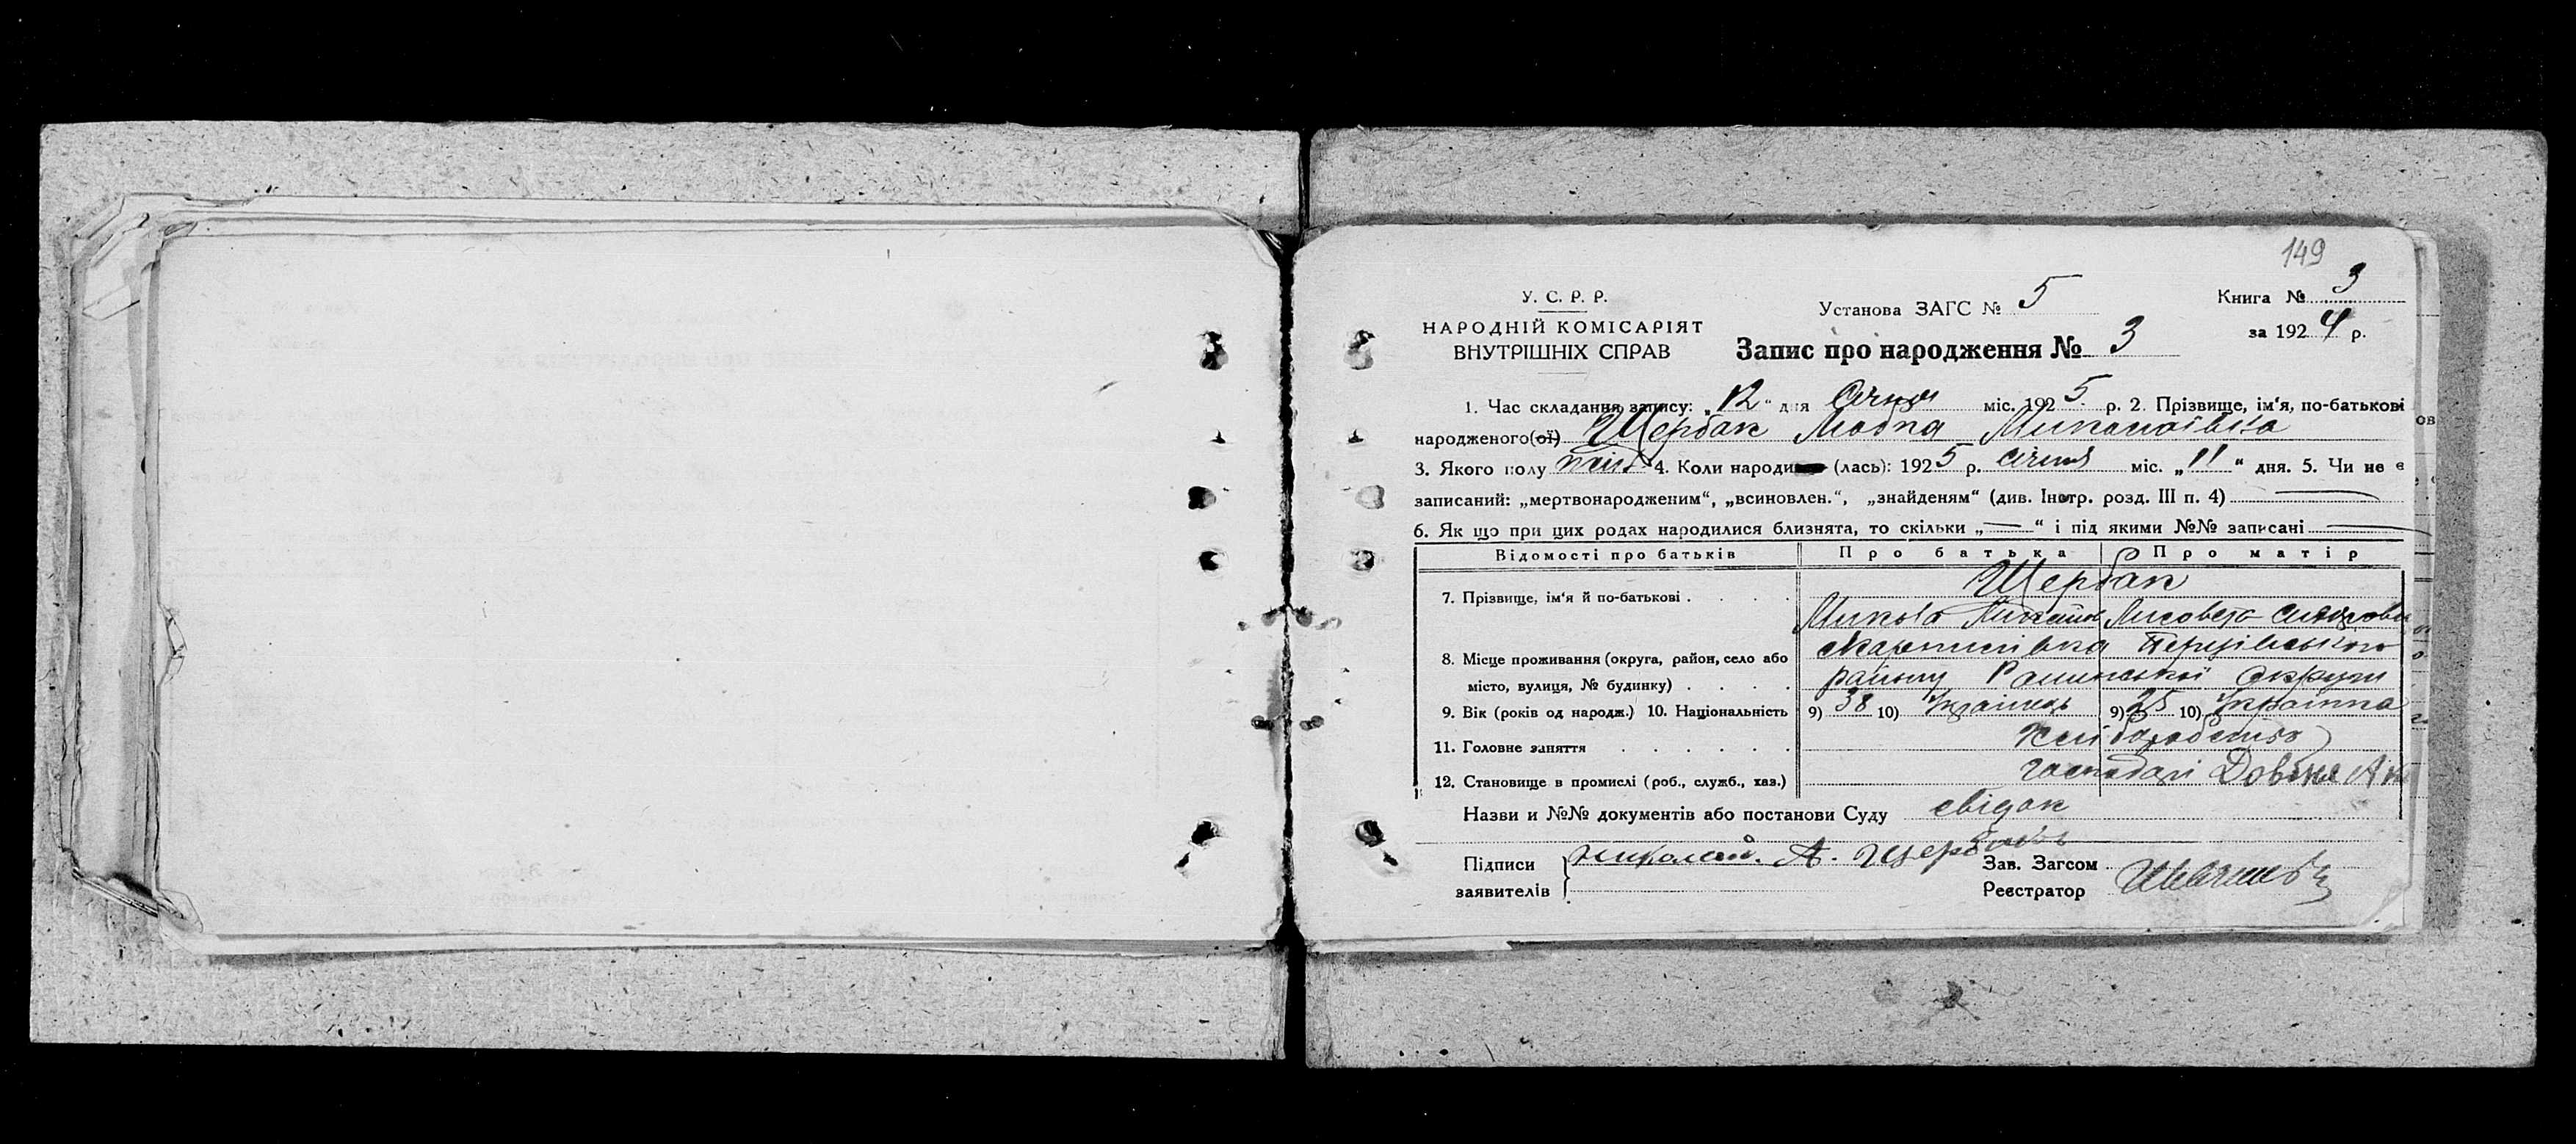 149
У. С. Р. Р.
НАРОДНІЙ КОМІСАРІЯТ
ВНУТРІШНІХ СПРАВ
Установа ЗАГС № 5
Запис про народження № 3
Книга № 3
за 1924 р.
1. Час складання запису: „12“ дня Січня міс. 1925 р. 2. Прізвище, ім'я, по-батькові
народженого(ої) Щербак Миколаївна
3. Якого полу жін. 4. Коли народи (лась): 1925 р. січня міс. „11“ дня. 5. Чи не є
записаний: „мертвонародженим“, „всиновлен.“, „знайденям“ (див. Інстр. розд. III п. 4) —
6. Як що при цих родах народилися близнята, то скільки „—“ і під якими №№ записані —
Відомості про батьків Про батька Про матір
7. Прізвище, ім'я й по-батькові . . . . Щербак
Микола
8. Місце проживання (округа, район, село або
місто, вулиця, № будинку) . . . . району Роменської Округи
9. Вік (років од народж.) 10. Національність 9) 38 10) Українець 9) 25 10) Українка
11. Головне заняття . . . . . . Хліборобство
12. Становище в промислі (роб., служб., хаз.) господарі
Назви и №№ документів або постанови Суду свідок
Підписи
заявителів
Николай. А. Щербак
Зав. Загсом
Реєстратор